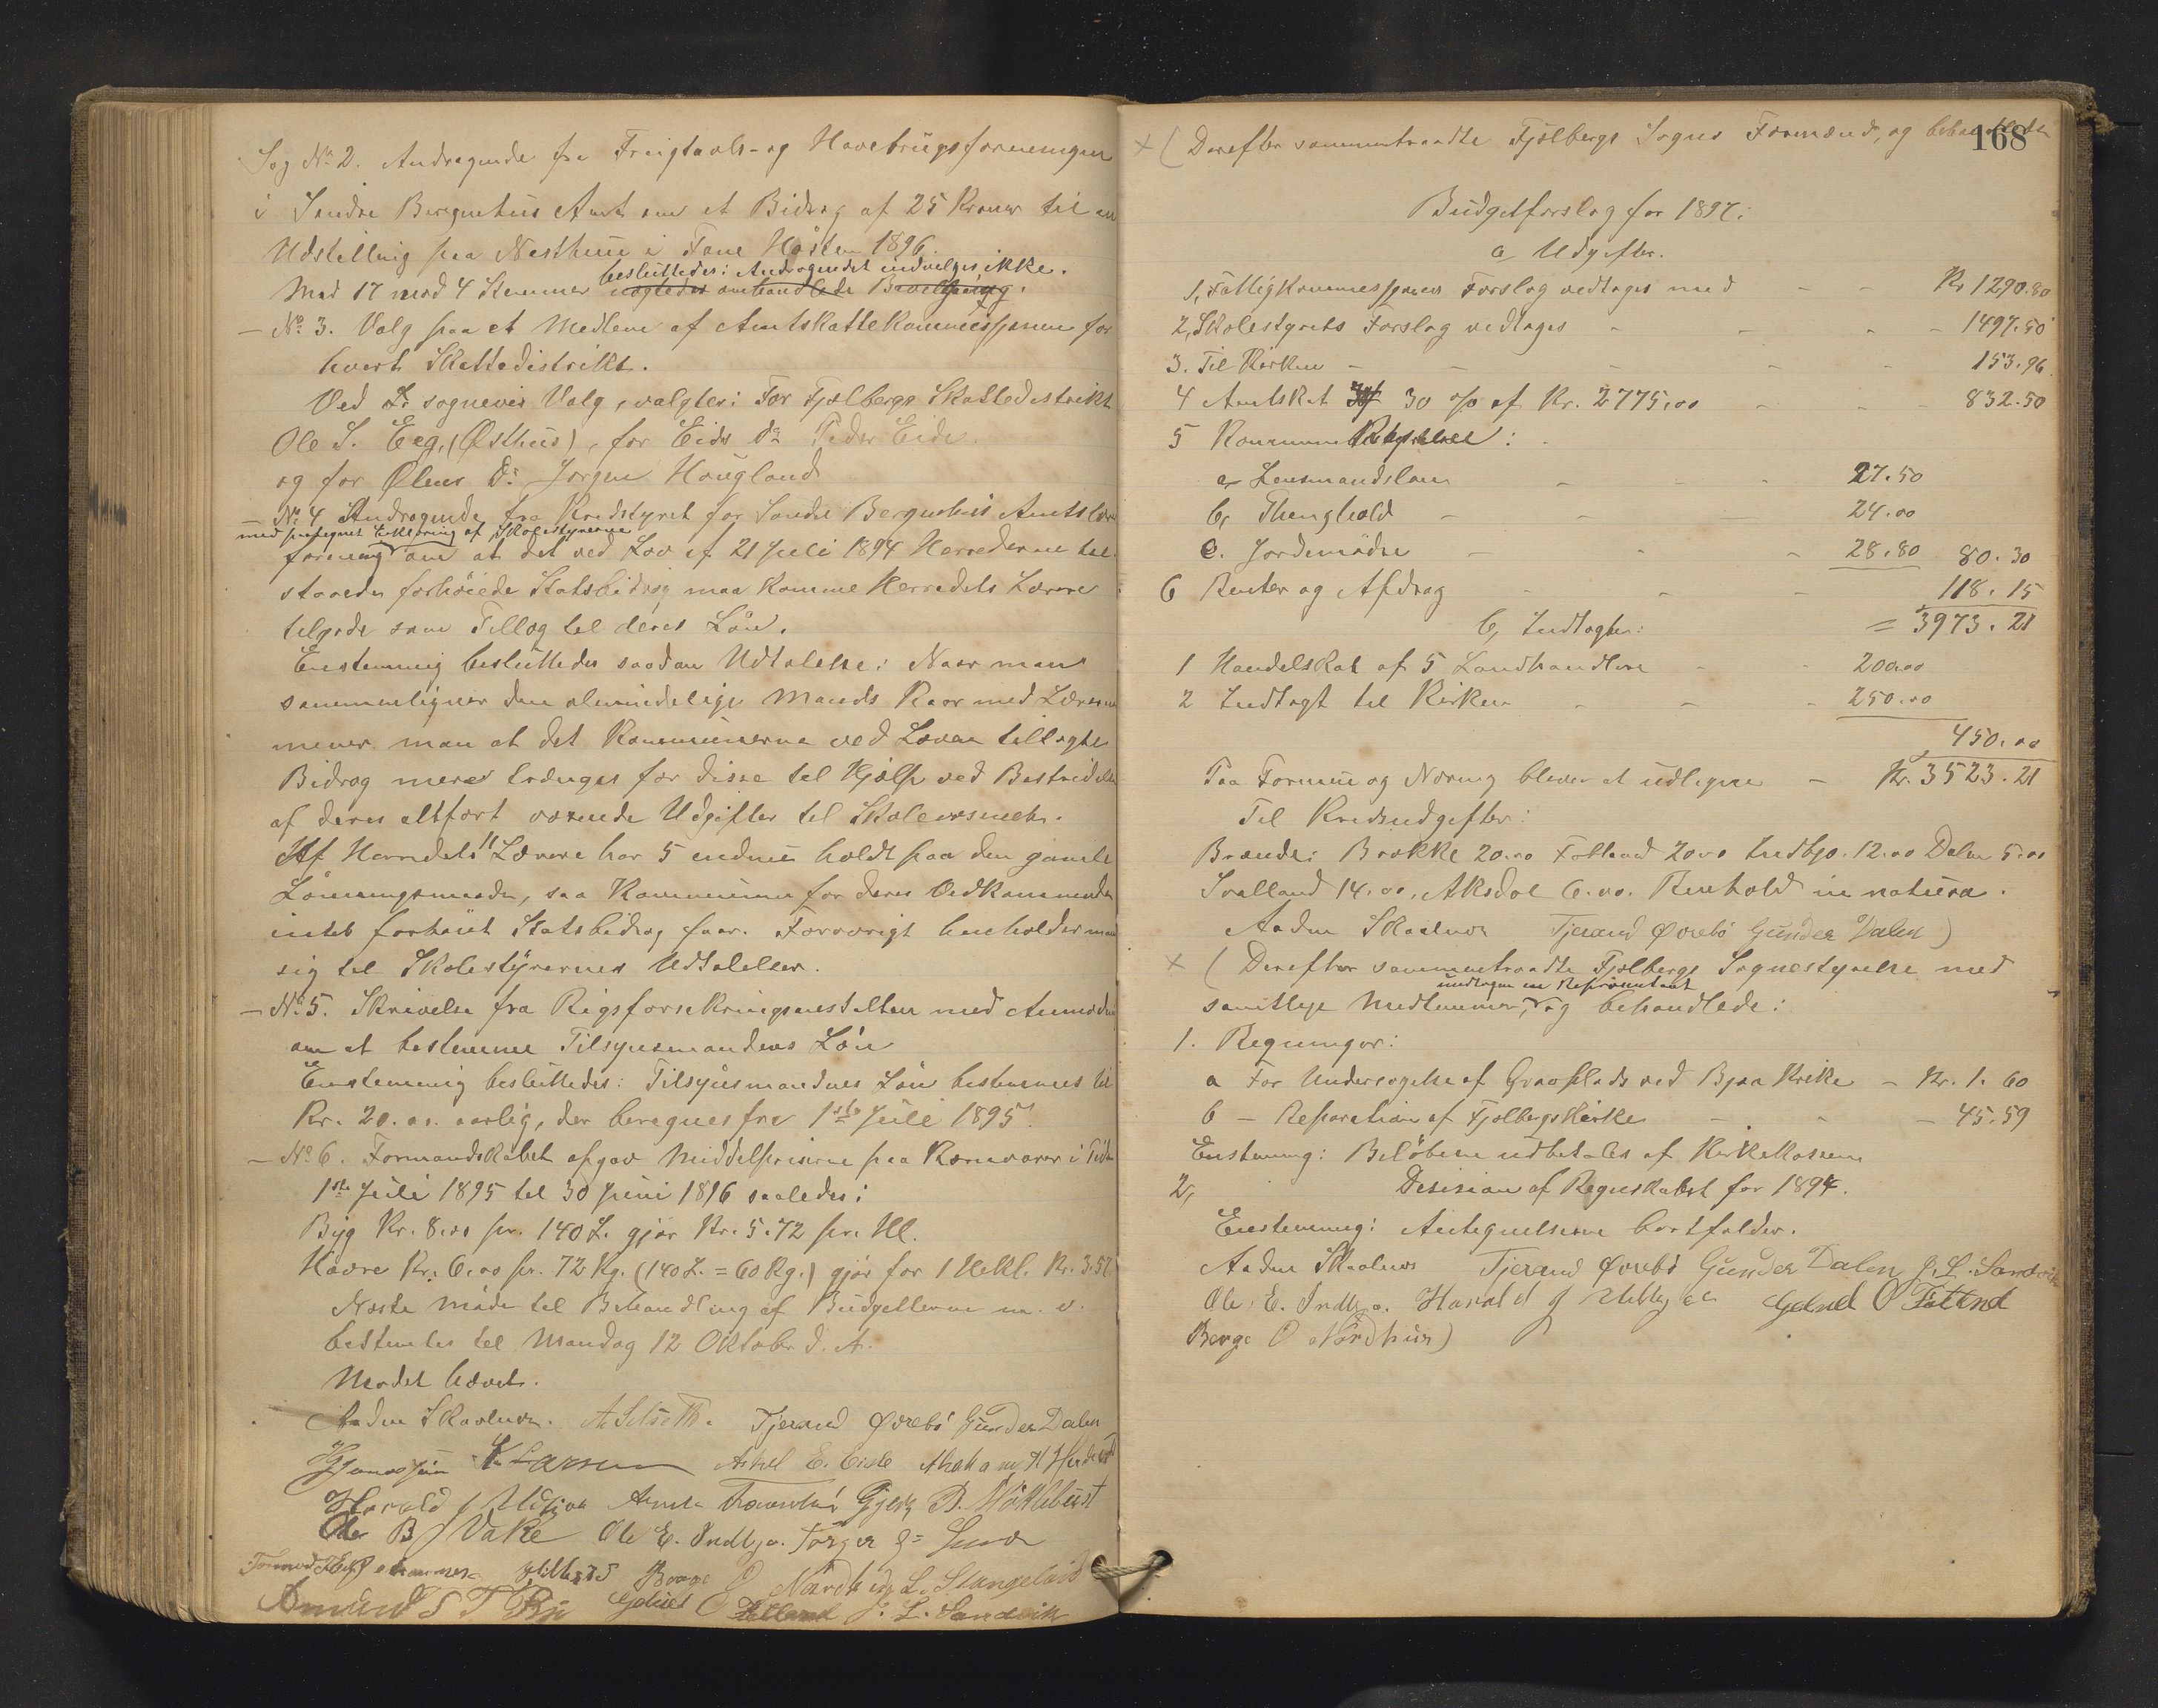 Sag No 2. Andragende fra Frugtavls- og Havebrugsforeningen
i Søndre Bergenhus Amt om et Bidrag af 25 Kroner til en
Udstilling paa Nesthun i Fane Høsten 1896.
besluttedes: Andragendet indvilges ikke.
Med 17 mod 4 Stemmer
– No 3. Valg paa et Medlem af Amtskattekommissionen for
hvert Skattedistrikt.
Ved sognevis Valg, valgtes: For Fjelberg Skattedistrikt
Ole S. Eeg, (Østhus), for Eids do Peder Eide
og for Ølens do Jørgen Hougland
– No 4 Andragende fra Kredsstyret for Søndre Bergenhus Amts Lærer
med paategnet Erklæring af Skolestyrerne
forening om at det ved Lov af 21 Juli 1894 Herrederne til-
staaede forhøiede Statsbidrag maa komme Herredets Lærere
tilgode som Tillæg til deres Løn.
Enstemmig besluttedes saadan Udtalelse: Naar man
sammenligner den almindelige Mands Kaar med Lærernes
mener man at det Kommunerne ved Loven tillagte
Bidrag mere trænges for disse til Hjælp ved Bestridelse
af deres altfort voxende Udgifter til Skolevæsenet.
Af Herredets 11 Lærere har 5 endnu holdt paa den gamle
Lønningsmaade, saa Kommunen for deres Vedkommende
intet forhøiet Statsbidrag faar. Forøvrigt henholder man
sig til Skolestyrernes Udtalelser.
– No 5. Skrivelse fra Rigsforsikringsanstalten med Anmodn
om at bestemme Tilsynsmandens Løn
Enstemmig besluttedes: Tilsynsmandens Løn bestemmes til
Kr. 20.00 aarlig, der beregnes fra 1ste Juli 1895.
– No 6. Formandskabet opgav Middelpriserne paa Kornvarer i Tiden
1ste Juli 1895 til 30 Juni 1896 saaledes:
Byg Kr. 8.00 pr. 140 L. gjør Kr. 5.72 pr. Hl.
Havre Kr. 6.00 pr. 72 Kg. (140 L. = 60 Kg.) gjør for 1 Hekl. Kr. 3.57
Næste Møde til Behandling af Budgetterne m. v.
bestemtes til Mandag 12 Oktober d. A.
Mødet hævet.
Aadne Skaalnes. A Sætseth. Tjerand Øvrebø Gunder Dalen
Larsen Askel E. Eide
Harald J Gjert B.
Ole B J Vake Ole E. Indbjo. Torger J. Lund
Berge O Nordhus L. Stangeland
Amund S T Bu Gabriel O Følland J. L. Sandvik
168
× ( Derefter sammentraadte Fjelbergs Sogns Formænd, og behandlede
Budgetforslag for 1897:
a Udgifter.
1, Fattigkommissionens Forslag vedtages med – – Kr 1290.80
2, Skolestyrets Forslag vedtages – – – 1497.50
3. Til Kirken – – – – 153.96
4 Amtskat 30 o/o af Kr. 2775,00 – – 832.50
5 Kommune :
a, Lensmandsløn – – – 27.50
b, Thinghold – – 24.00
c. Jordemødre – – – 28.80 80.30
6 Renter og Afdrag – – – 118.15
b, Indtægter: = 3973.21
1 Handelskat af 5 Landhandlere – – 200.00
2 Indtægt til Kirken – – – 250.00
450.00
Paa Formue og Næring bliver at udligne – Kr. 3523.21
Til Kredsudgifter:
Brænde: Brække 20.00 Følland 20.00 Indbjo. 12.00 Dalen 5.00
Svalland 14.00, Aksdal 6.00. Renhold in natura.
Aadne Skaalnes Tjerand Øvrebø Gunder Dalen )
× ( Derefter sammentraadte Fjelbergs Sognestyrelse med
undtagen en Repræsentant
samtlige Medlemmer, og behandlede:
1. Regninger:
a For Undersøgelse af Gravplads ved Bjoa Kirke – Kr. 1.60
b – Reparation af Fjelbergs Kirke – – – 45.59
Enstemmig: Beløbene udbetales af Kirkekassen
2, Desision af Regnskabet for 1894.
Enstemmig: Antegnelserne bortfalder.
Aadne Skaalnes Tjerand Øvrebø Gunder Dalen J. L. Sandvik
Ole E. Indbjo. Harald J Gabriel O Følland
Berge O Nordhus)